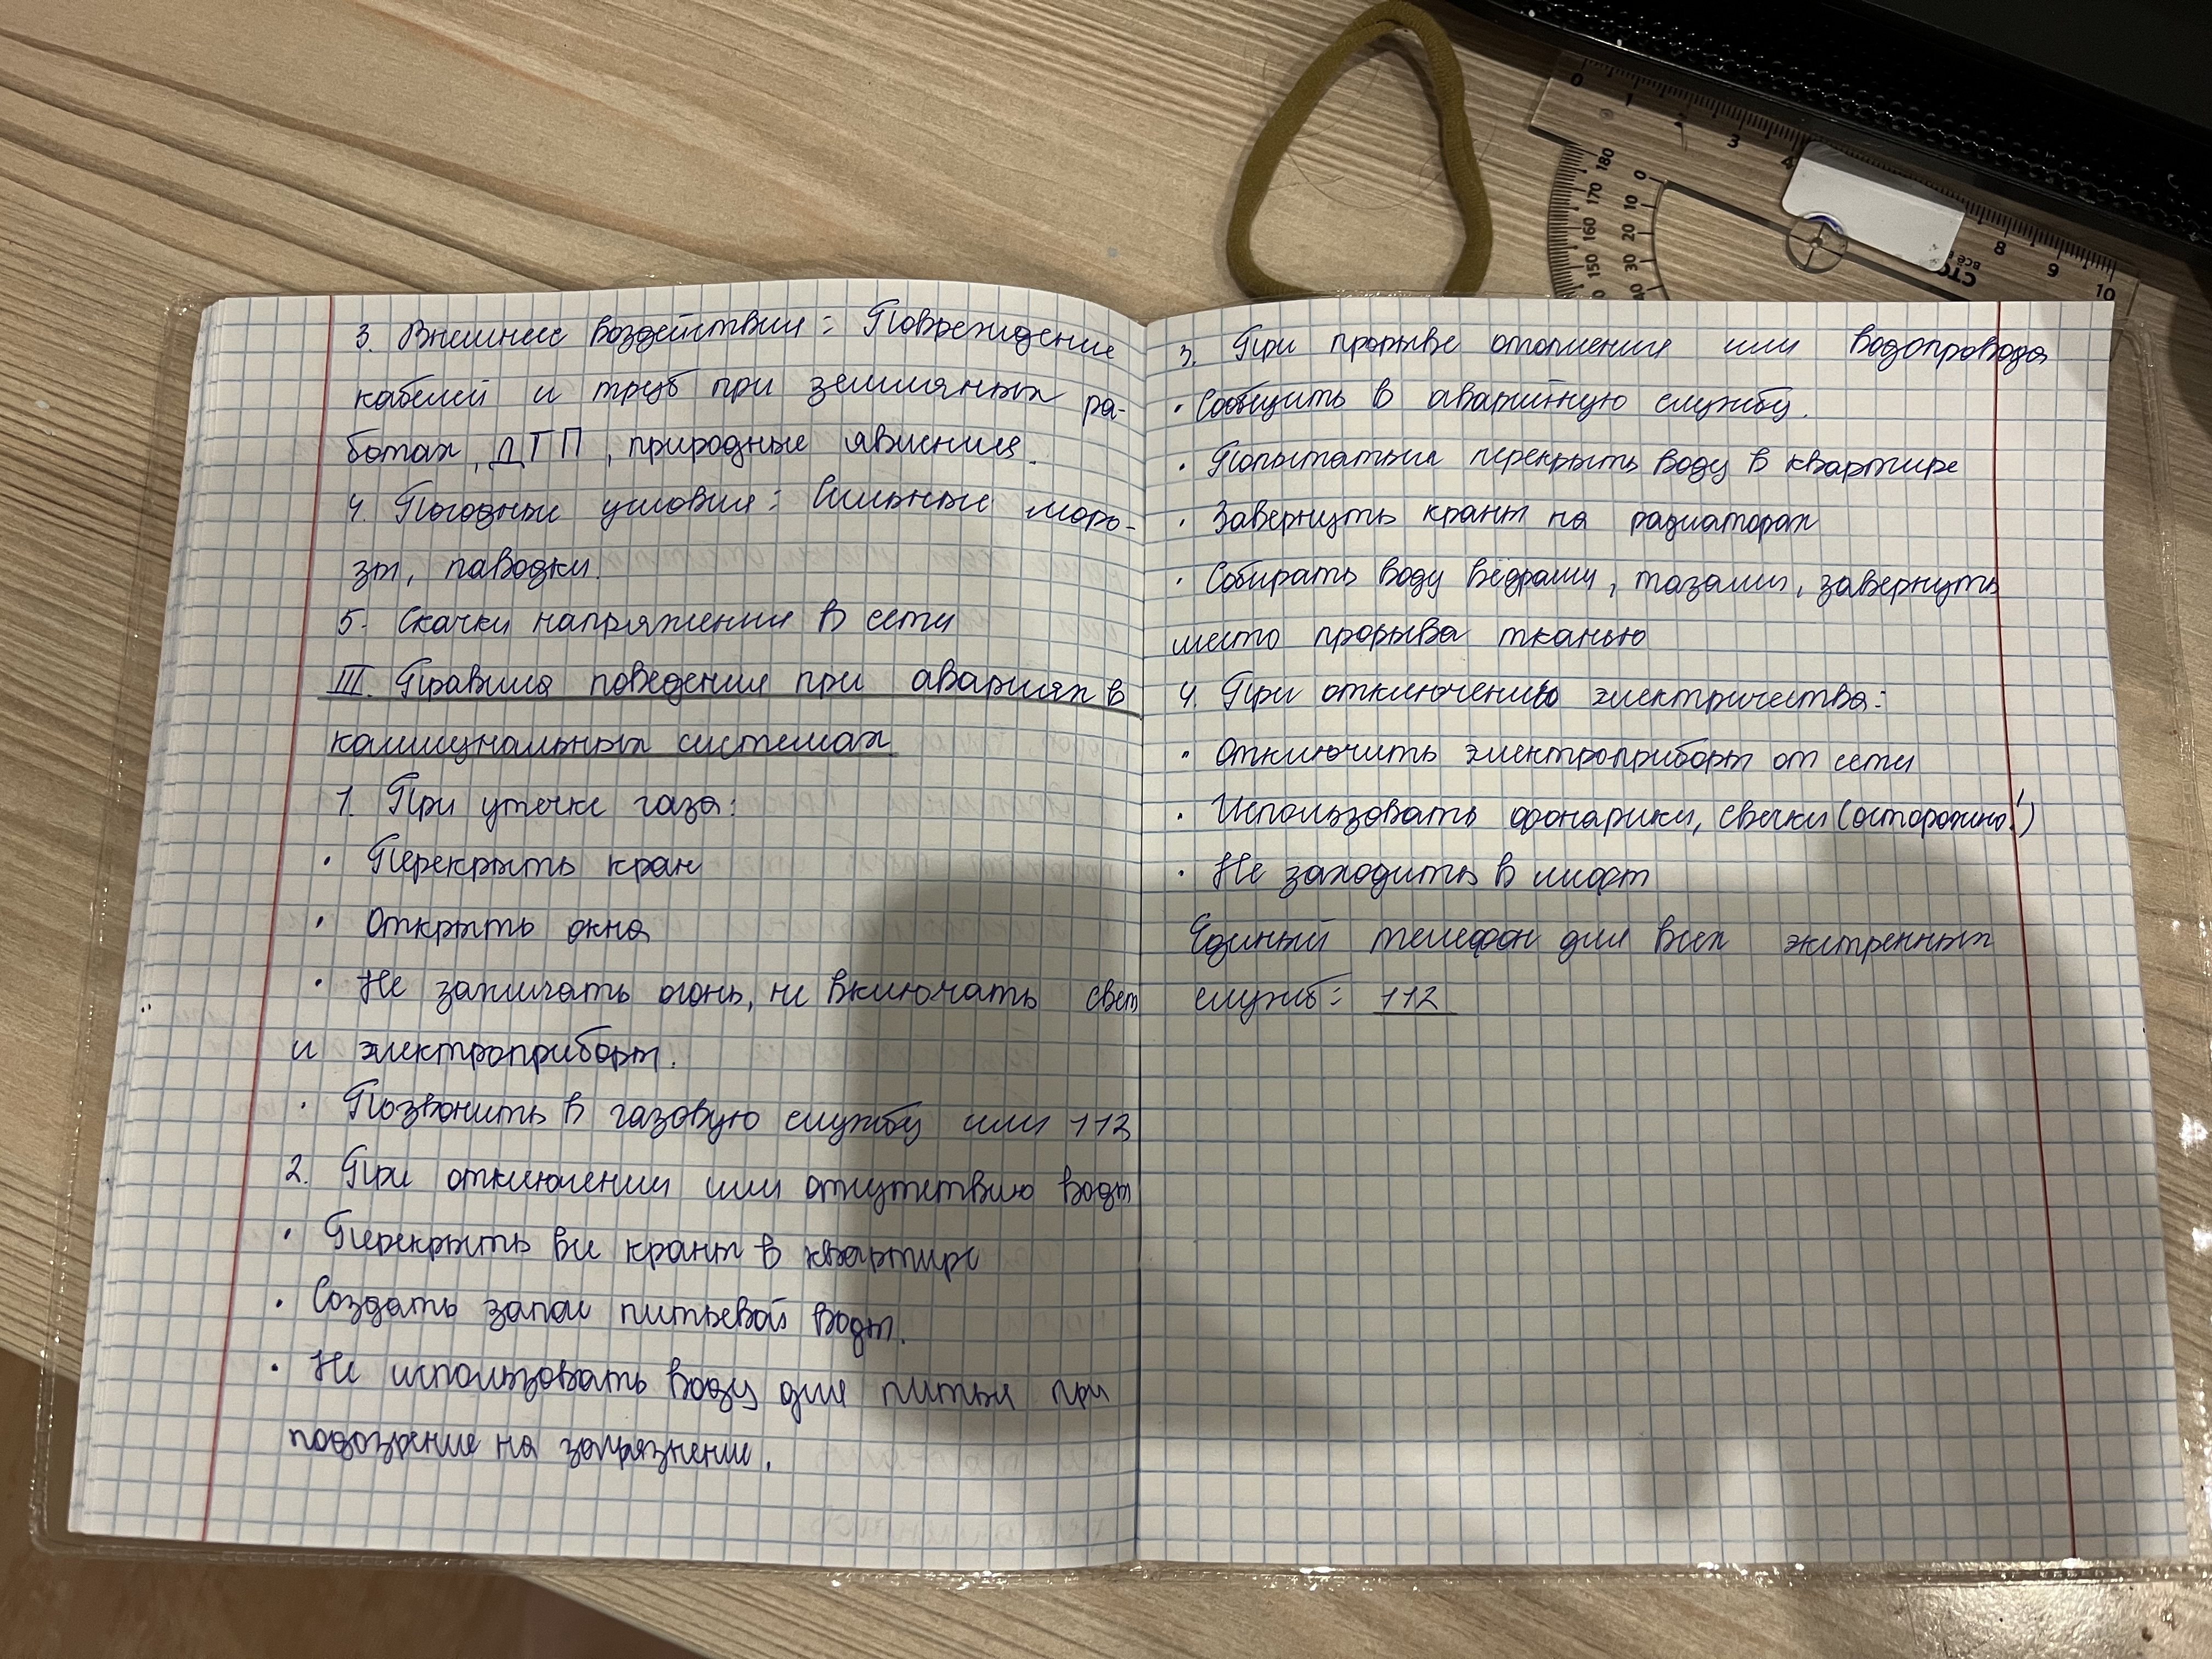 3. Внешние воздействия: Повреждение
кабелей и труб при земляных ра-
ботах, ДТП, природные явления.
4. Погодные условия: Сильные моро-
зы, паводки.
5. Скачки напряжения в сети
III. Правила поведения при авариях в
коммунальных системах
1. При утечке газа:
· Перекрыть кран
· Открыть окна
· Не зажигать огонь, не включать свет
и электроприборы.
· Позвонить в газовую службу или 112
2. При отключении или отсутствию воды
· Перекрыть все краны в квартире
· Создать запас питьевой воды.
· Не использовать воду для питья при
подозрение на загрязнение.
3. При прорыве отопления или водопровода
· Сообщить в аварийную службу.
· Попытаться перекрыть воду в квартире
· Завернуть краны на радиаторах
· Собирать воду вёдрами, тазами, завернуть
место прорыва тканью
4. При отключению электричества:
· Отключить электроприборы от сети
· Использовать фонарики, свечки (осторожно!)
· Не заходить в лифт
Единый телефон для всех экстренных
служб: 112
0 1 3 4 8 9 10
180 170 160 150
0 10 20 30 40